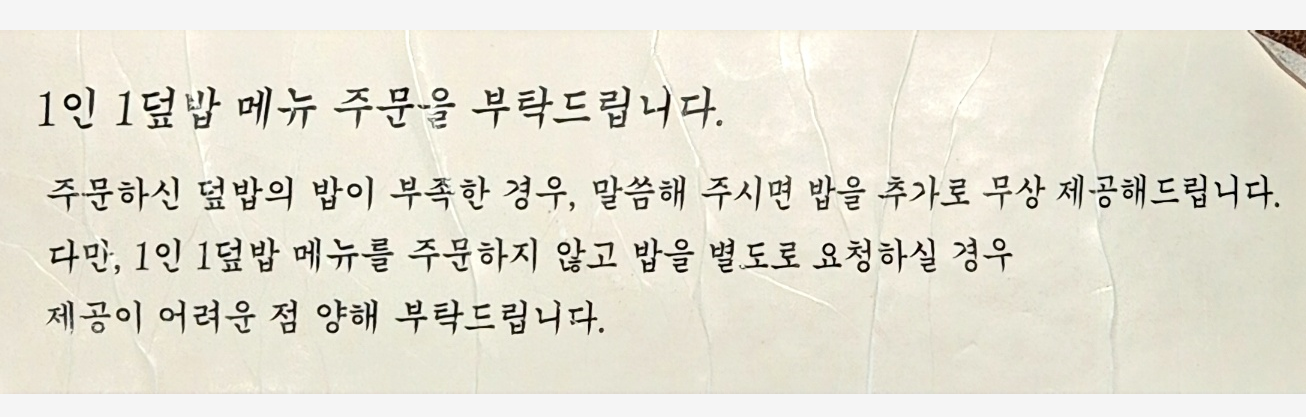 1인 1덮밥 메뉴 주문을 부탁드립니다.
주문하신 덮밥의 밥이 부족한 경우, 말씀해 주시면 밥을 추가로 무상 제공해드립니다.
다만, 1인 1덮밥 메뉴를 주문하지 않고 밥을 별도로 요청하실 경우
제공이 어려운 점 양해 부탁드립니다.